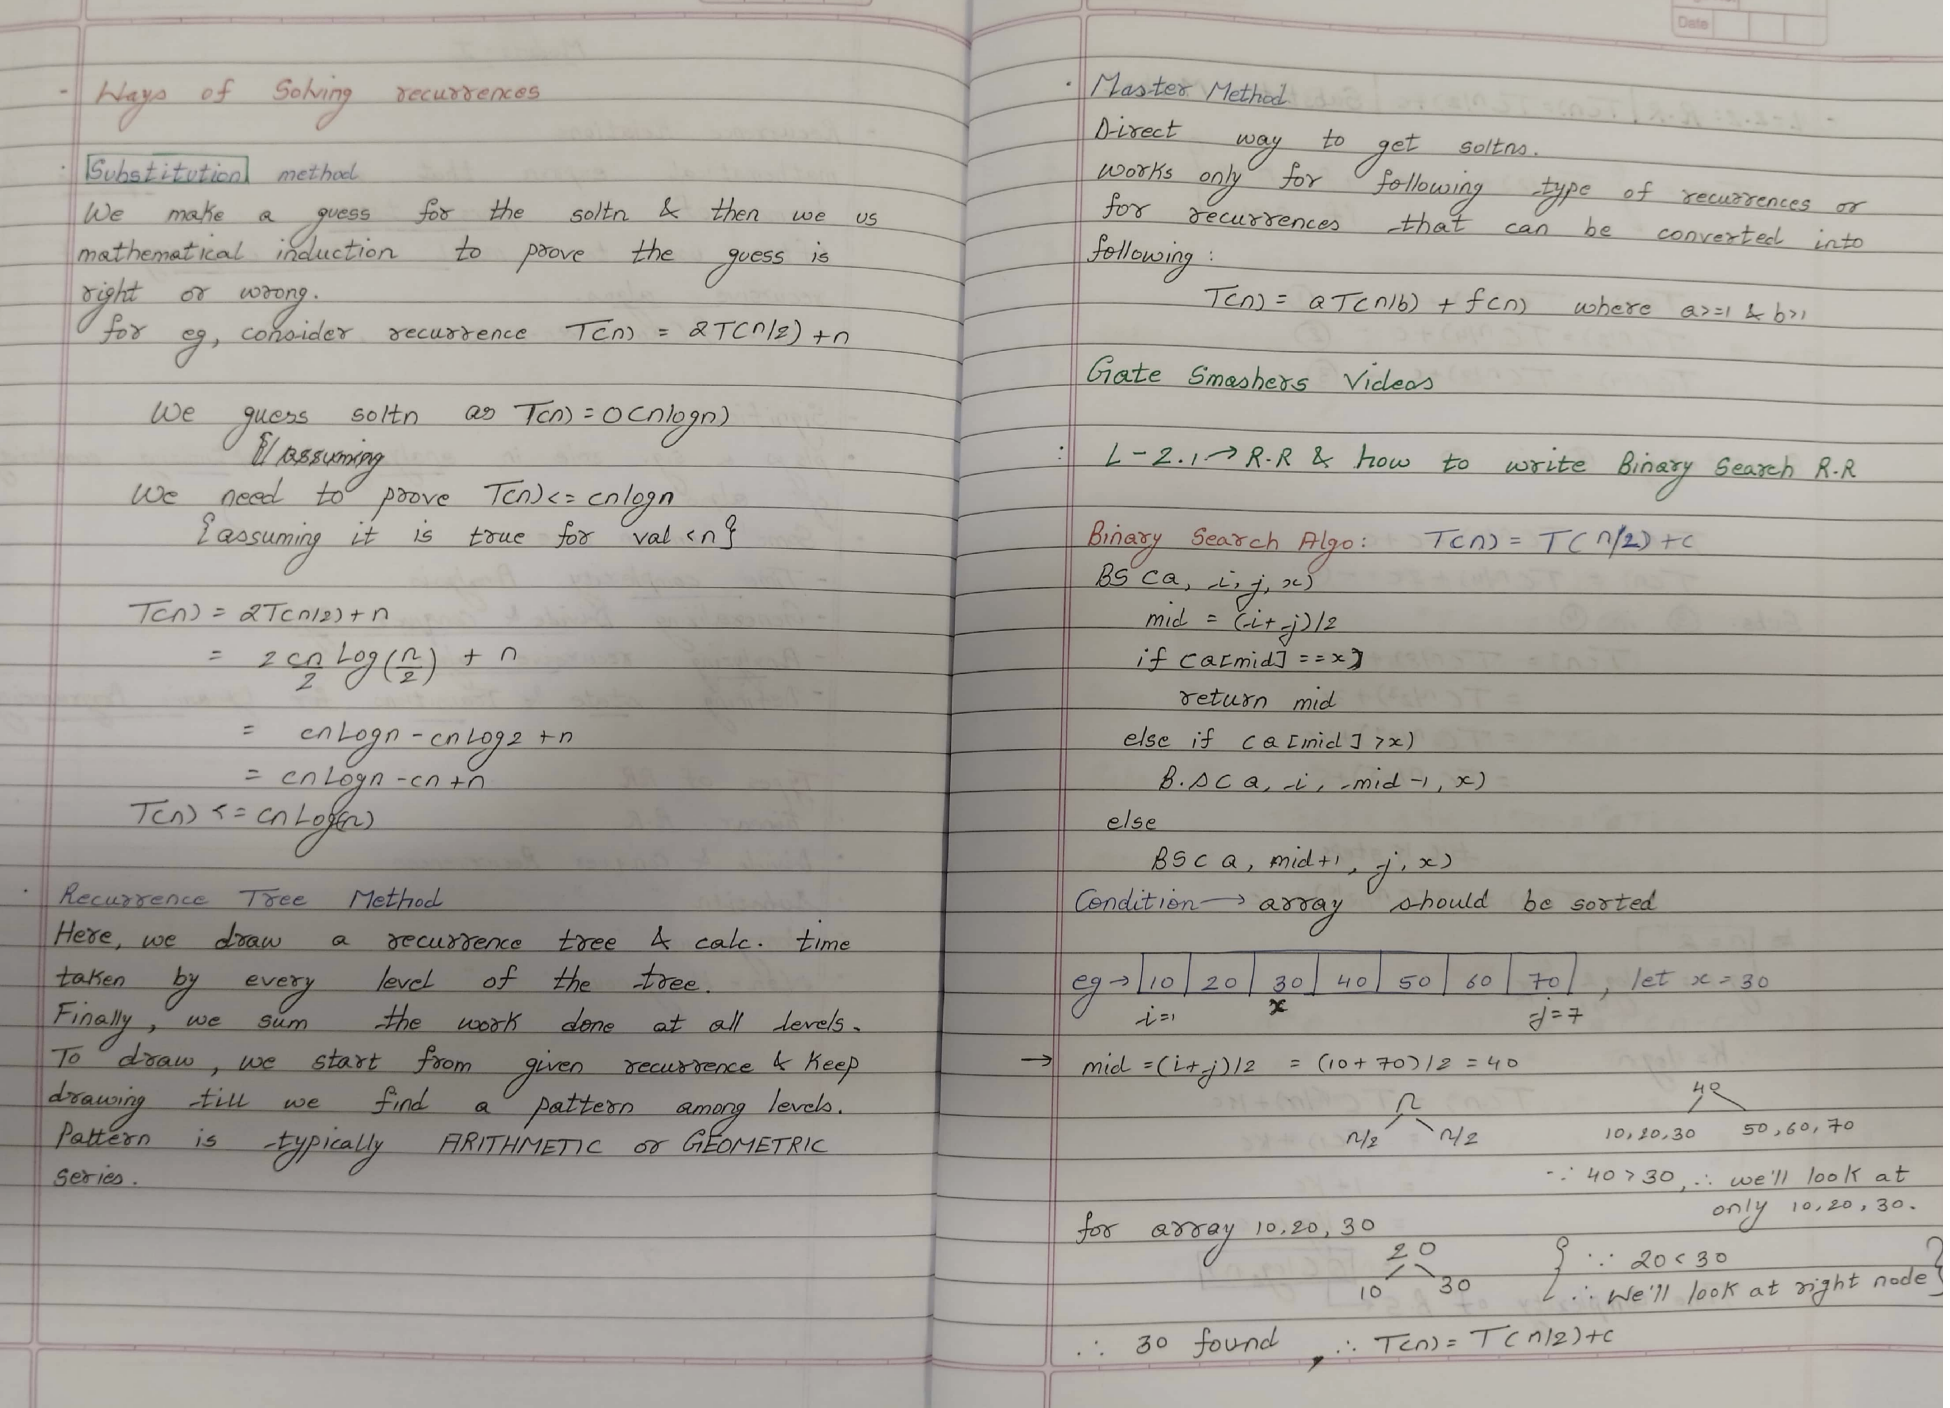 - Ways of Solving recurrences
· Substitution method
We make a guess for the soltn & then we us
mathematical induction to prove the guess is
right or wrong.
for eg, consider recurrence T(n) = 2T(n/2) + n
We guess soltn as T(n) = O(nlogn)
assuming
We need to prove T(n) <= cnlogn
{assuming it is true for val <n}
T(n) = 2T(n/2) + n
= 2 cn/2 Log(n/2) + n
= cnLogn - cnLog2 + n
= cnLogn - cn + n
T(n) <= cnLog(n)
· Recurrence Tree Method
Here, we draw a recurrence tree & calc. time
taken by every level of the tree.
Finally, we sum the work done at all levels.
To draw, we start from given recurrence & keep
drawing till we find a pattern among levels.
Pattern is typically ARITHMETIC or GEOMETRIC
series.
Date
· Master Method
Direct way to get soltns.
works only for following type of recurrences or
for recurrences that can be converted into
following :
T(n) = aT(n/b) + f(n) where a>=1 & b>1
Gate Smashers Videos
: L-2.1 → R.R & how to write Binary Search R.R
Binary Search Algo: T(n) = T(n/2) + c
BS(a, i, j, x)
mid = (i+j)/2
if (a[mid] == x)
return mid
else if (a[mid] >x)
B.S(a, i, mid-1, x)
else
BS(a, mid+1, j, x)
Condition → array should be sorted
eg → 10 20 30 40 50 60 70 , let x = 30
i=1 x j=7
→ mid = (i+j)/2 = (10+70)/2 = 40
n 40
n/2 n/2 10,20,30 50,60,70
∵ 40>30, ∴ we'll look at
only 10,20,30.
for array 10,20,30
20 { ∵ 20<30
10 30 ∴ We'll look at right node }
∴ 30 found , ∴ T(n) = T(n/2)+c